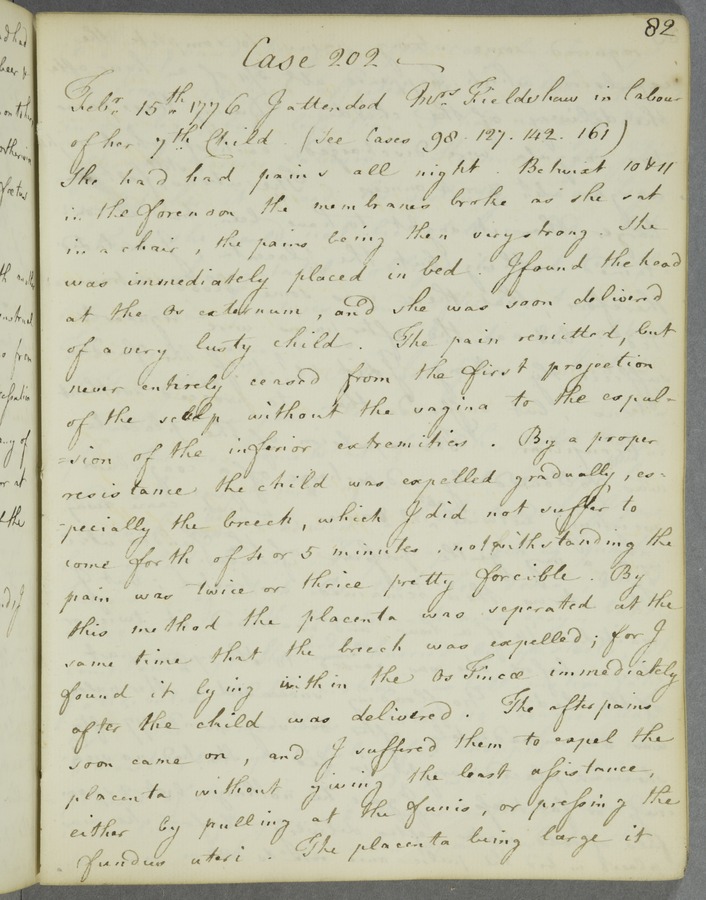 82
Case 202
Febr. 15th. 1776 I attended Mrs. Fieldshaw in labour
of her 7th. Child. (See Cases 98. 127. 142. 161)
She had had pains all night. Betwixt 10 & 11
in the forenoon the membranes broke as she sat
in a chair, the pains being then very strong. She
was immediately placed in bed. I found the head
at the Os externum, and she was soon delivered
of a very lusty child. The pain remitted, but
never entirely ceased from the first projection
of the scalp without the vagina to the expul-
-sion of the inferior extremities. By a proper
resistance the child was expelled gradually, es-
-pecially the breech, which I did not suffer to
come forth of 4 or 5 minutes, notwithstanding the
pain was twice or thrice pretty forcible. By
this method the placenta was seperated at the
same time that the breech was expelled; for I
found it lying within the Os Tincæ immediately
after the child was delivered. The afterpains
soon came on, and I suffered them to expel the
placenta without giving the least assistance,
either by pulling at the funis, or pressing the
fundus uteri. The placenta being large it